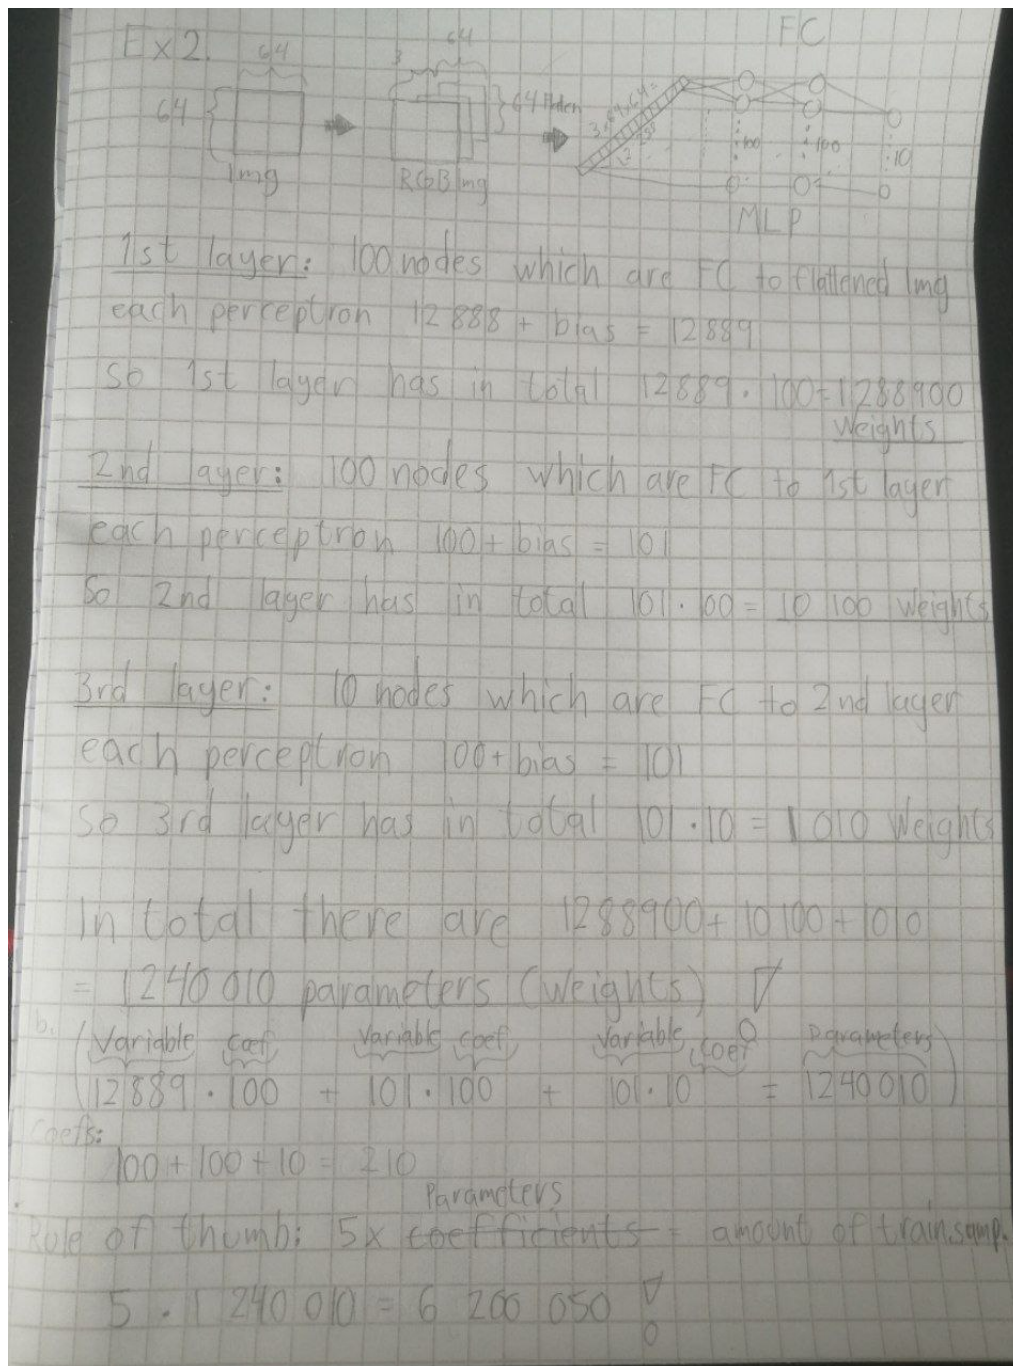 Ex2.
64
64
Img
3
64
64
RGB Img
FC
3·64·64=
:100
:100
:10
MLP
1st layer: 100 nodes which are FC to flattened Img
each perceptron 12888 + bias = 12889
So 1st layer has in total 12889 · 100 = 1288900
Weights
2nd layer: 100 nodes which are FC to 1st layer
each perceptron 100 + bias = 101
So 2nd layer has in total 101 · 100 = 10 100 Weights
3rd layer: 10 nodes which are FC to 2nd layer
each perceptron 100 + bias = 101
So 3rd layer has in total 101 · 10 = 1 010 Weights
In total there are 1288900 + 10100 + 1010
= 1240010 parameters (weights)
b.
(Variable Coef Variable Coef Variable Coef Parameters
12889 · 100 + 101 · 100 + 101 · 10 = 1240010)
Coefs:
100 + 100 + 10 = 210
Parameters
Rule of thumb: 5x coefficients = amount of train.samp.
5 · 1 240 010 = 6 200 050